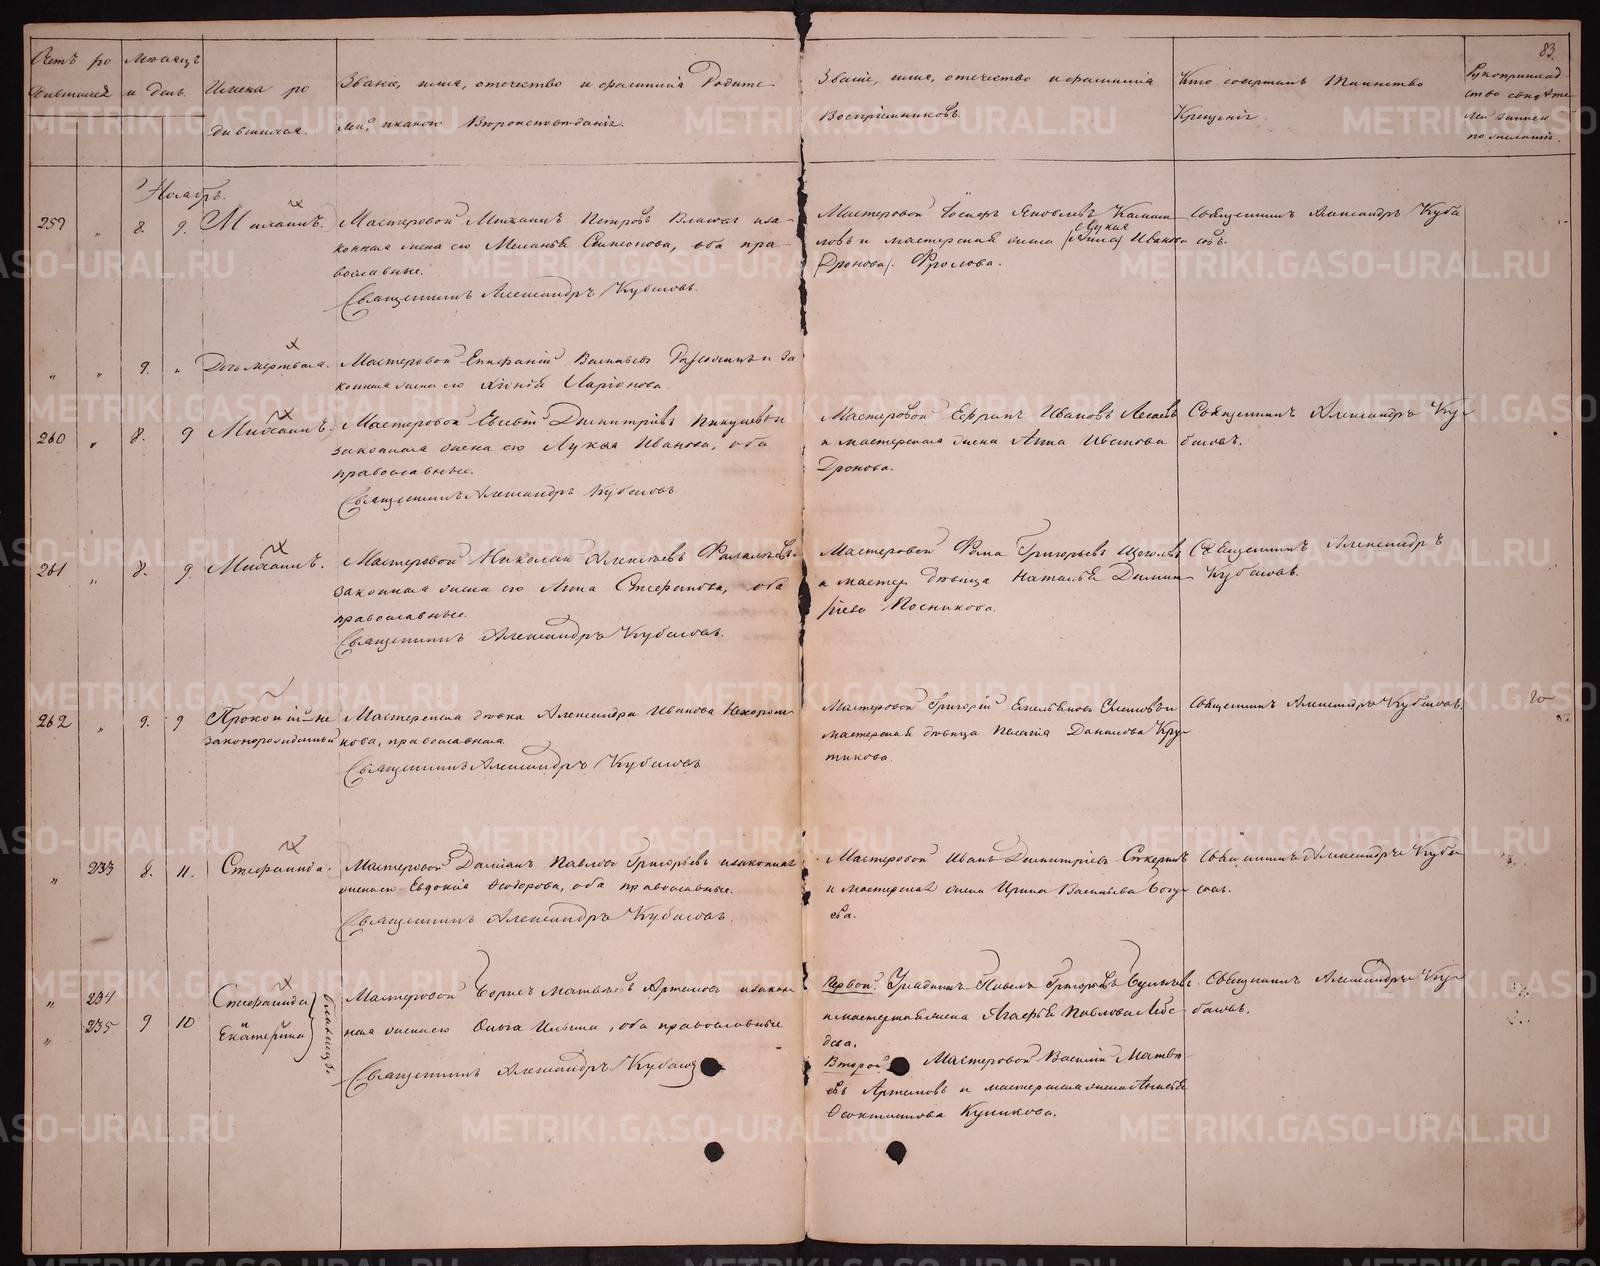 83.
Счетъ ро Мѣсяцъ
дившихся и день. Имена ро
дившихся.
Званіе, имя, отчество и фамилія Родите
лей, и какого Вѣроисповѣданія.
Званіе, имя, отчество и фамилія
Воспріемниковъ.
Кто совершалъ Таинство
Крещенія.
Рукоприклад-
ство свидѣте
лей записи
по желанію.
Ноябрь.
259 " 8. 9. Михаилъ. Мастеровой Михаилъ Петровъ и за-
конная жена его Меланья Симонова, оба пра-
вославные.
Священникъ Александръ Кубасовъ.
Мастеровой Іосифъ Яковлевъ
ловъ и мастерская жена (Анна) Лукия Иванова
(Дронова). Фролова.
Священникъ Александръ Куба
совъ.
" " 9. " Дочь мертвая. Мастеровой Епифаній Васильевъ и за
конная жена его Ксенія Ларіонова.
260 " 8. 9 Михаилъ. Мастеровой Евсевій Димитріевъ Пикулевъ и
законная жена его Лукья Иванова, оба
православные.
Священникъ Александръ Кубасовъ
Мастеровой Ефратъ Ивановъ
и мастерская жена Анна Иванова
Дронова.
Священникъ Александръ Ку-
басовъ.
261 " 8. 9. Михаилъ. Мастеровой Николай Алексѣевъ Фалалѣевъ
законная жена его Анна Стефанова, оба
православные.
Священникъ Александръ Кубасовъ.
Мастеровой Фома Григорьевъ Щеголевъ
и мастер. дѣвица Наталья Димит
ріева Посникова.
Священникъ Александръ
Кубасовъ.
262 " 9. 9 Прокопій-не
законорожденный
Мастерская дѣвка Александра Иванова Нехорош
кова, православная
Священникъ Александръ Кубасовъ
Мастеровой Григорій Емельяновъ
мастерская дѣвица Пелагія Данилова Кру-
тикова.
Священникъ Александръ Кубасовъ.
" 233 8. 11. Стефанида. Мастеровой Даміанъ Павловъ Григорьевъ и законная
жена его Евдокія Ѳеодорова, оба православные.
Священникъ Александръ Кубасовъ.
Мастеровой Иванъ Димитріевъ
и мастерская жена Ирина Васильева
ева.
Священникъ Александръ Куба
совъ.
" 234 Стефанида
" 235 9 10 Екатерина
близнецы.
Мастеровой Борисъ Матвѣевъ Артемовъ и закон
ная жена его Ольга Ильина, оба православные
Священникъ Александръ Кубасов
Первой: Урядникъ Павелъ Григорьевъ
и мастерская жена Агафья Павлова Лебе-
дева.
Второй Мастеровой Василій Матвѣ-
евъ Артемовъ и мастерская жена
Ѳеоктистова Куликова.
Священникъ Александръ Ку-
басовъ.
METRIKI.GASO-URAL.RU